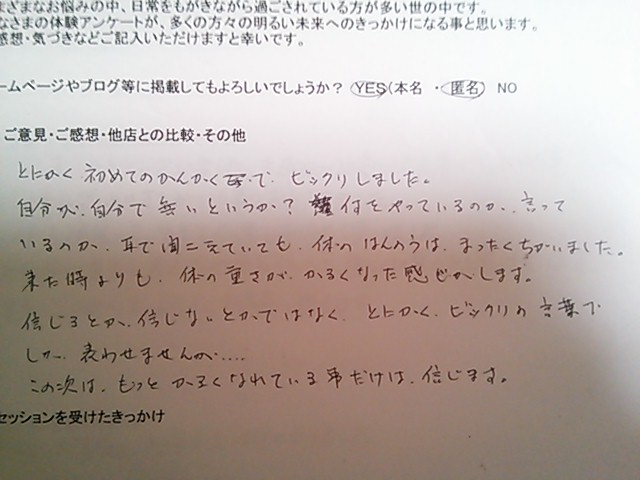 まざまなお悩みの中、日常をもがきながら過ごされている方が多い世の中です。
なさまの体験アンケートが、多くの方々の明るい未来へのきっかけになる事と思います。
感想・気づきなどご記入いただけますと幸いです。
ームページやブログ等に掲載してもよろしいでしょうか? YES(本名 ・ 匿名) NO
ご意見・ご感想・他店との比較・その他
とにかく 初めてのかんかくで、ビックリしました。
自分が、自分で無いというか? 何をやっているのか、言って
いるのか、耳で聞こえていても、体のはんのうは、まったくちがいました。
来た時よりも、体の重さが、かるくなった感じがします。
信じるとか、信じないとかではなく、とにかく、ビックリの言葉で
しか、表わせませんが‥‥
この次は、もっと かるくなれている事だけは、信じます。
セッションを受けたきっかけ